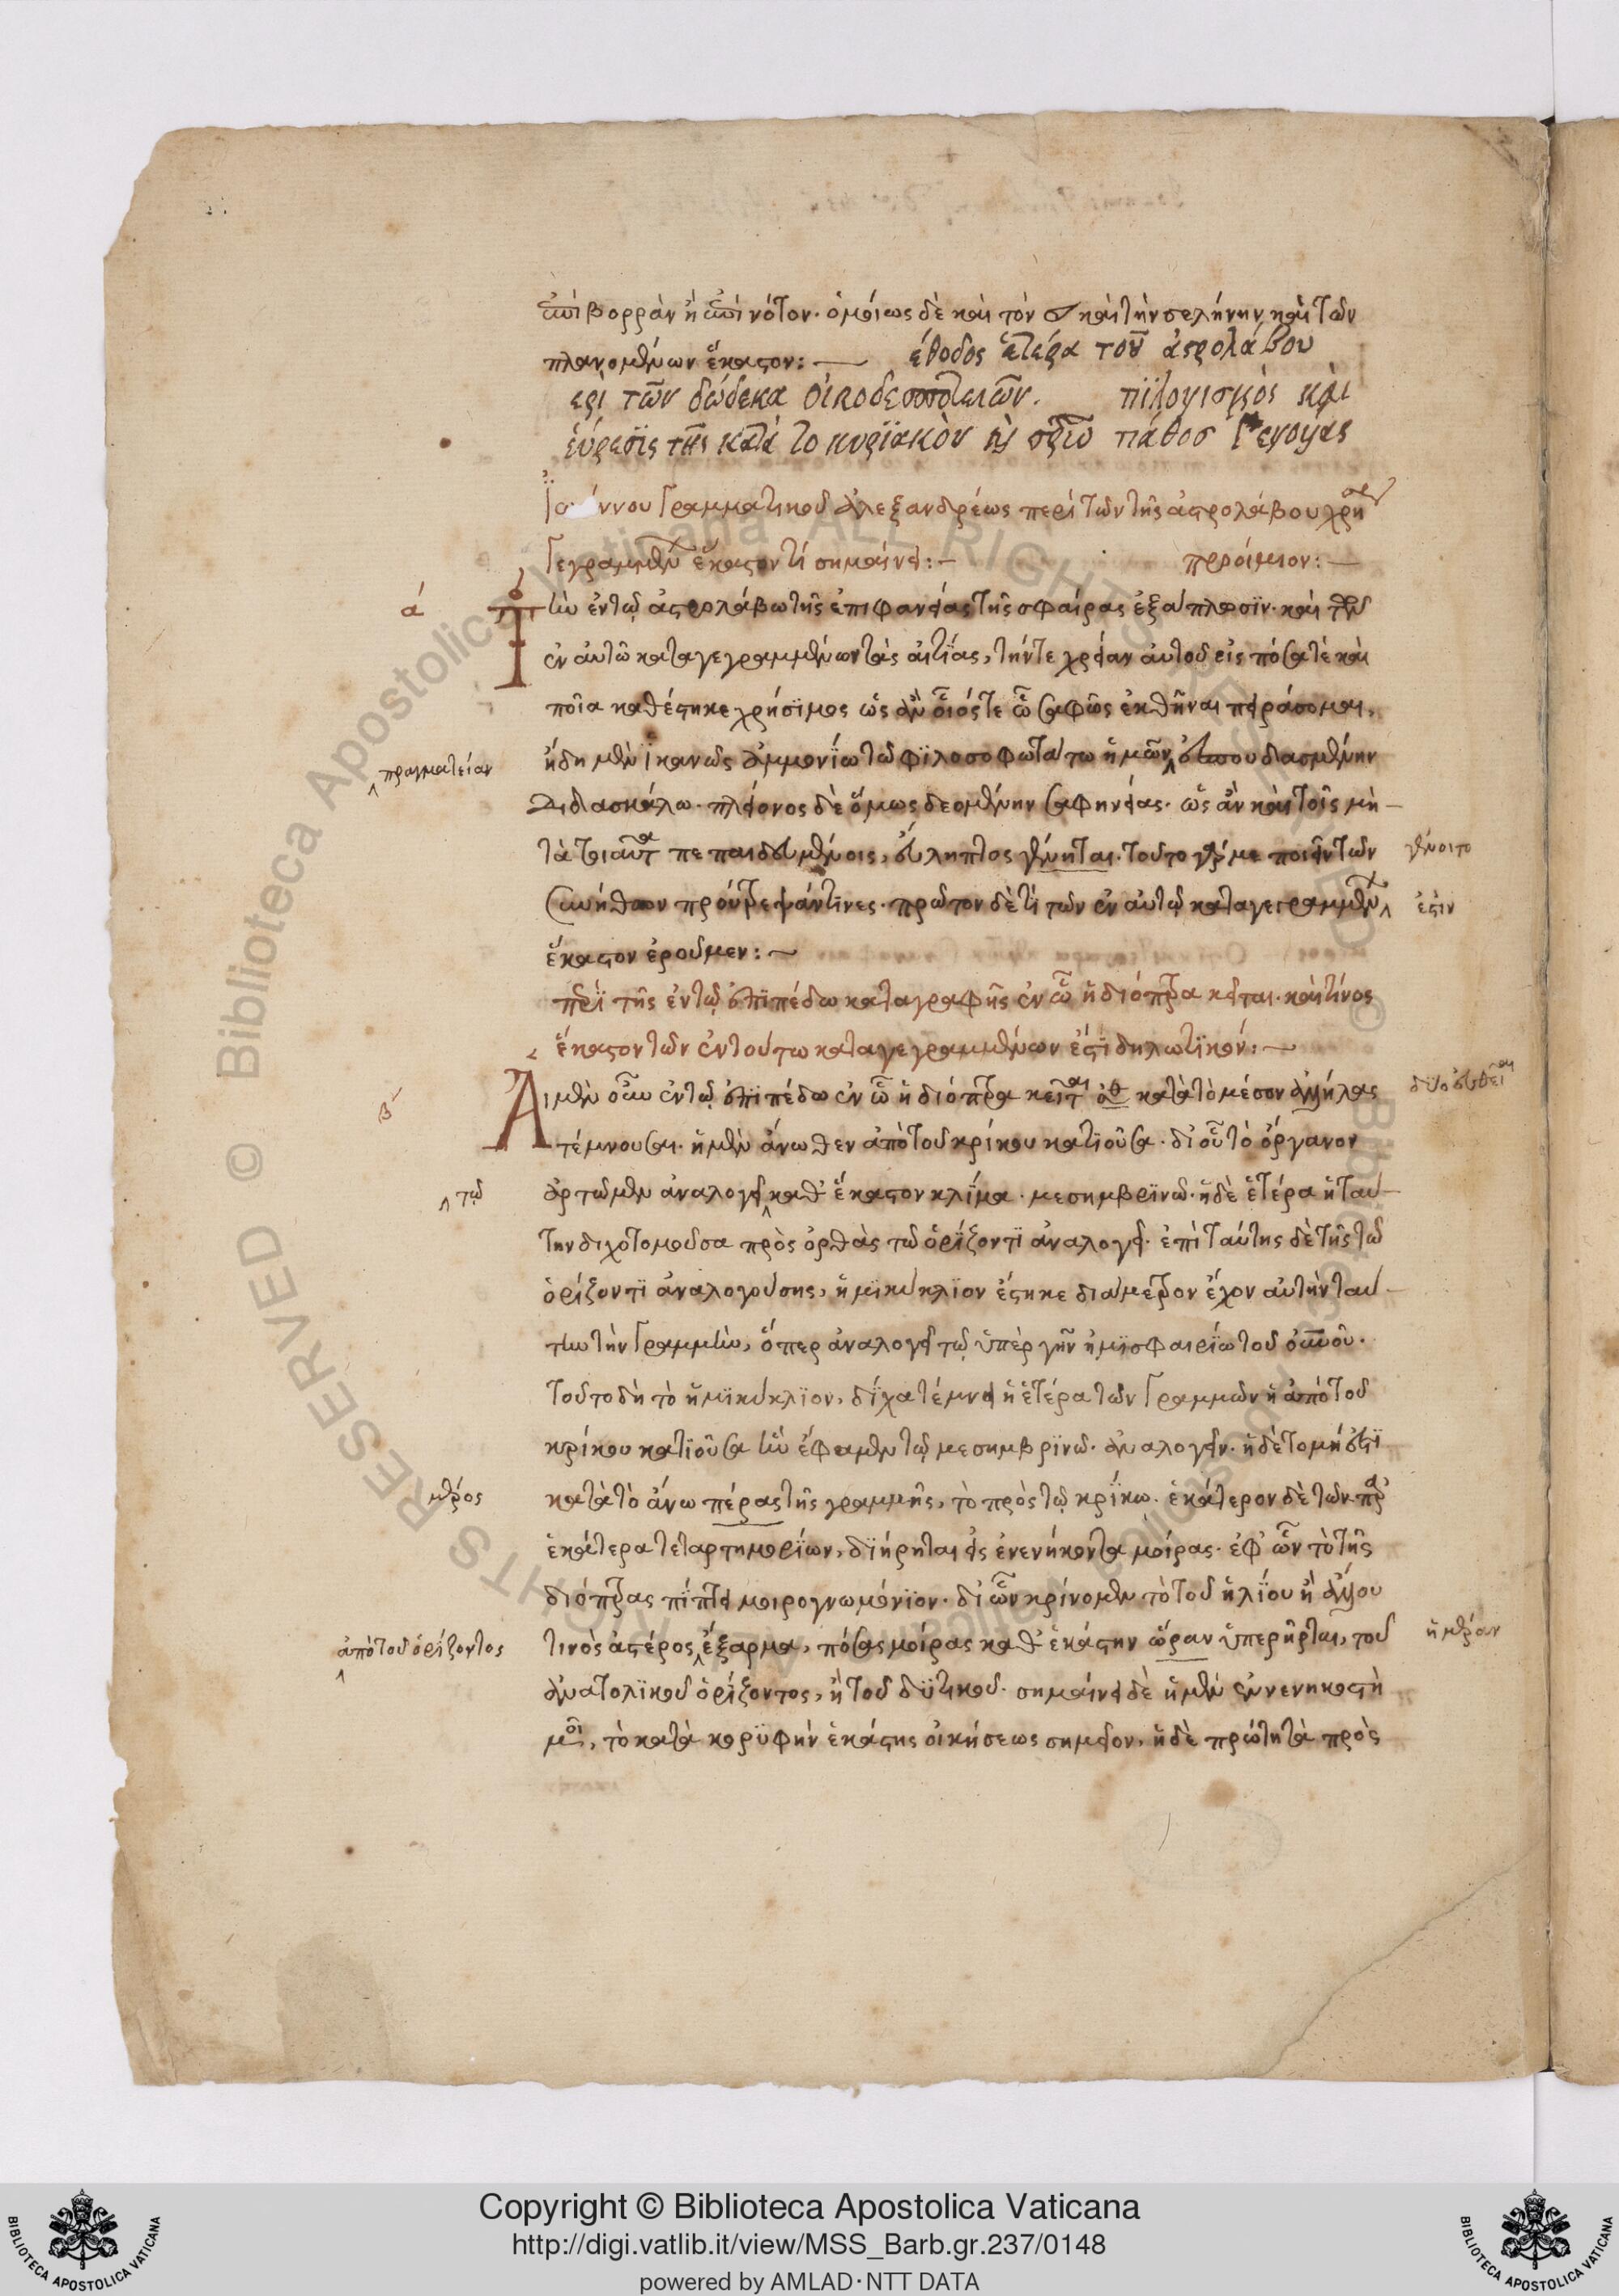 ἐπὶ βορρὰν ἢ ἐπὶ νότον. ὁμοίως δὲ καὶ τὸν καὶ τὴν σελήνην καὶ τῶν
πλανομένων ἕκαστον:
έθοδος ἑτέρα τοῦ ἀστρολάβου
ερὶ τῶν δώδεκα οἰκοδεσποτειῶν. πϊλογισμὸς καὶ
εὕρεσϊς τῆς κατὰ το κυρϊακὸν πάθος γενομας
Ἰω άννου γραμματικοῦ ἀλεξανδρέως περὶ τῶν τῆς ἀστρολάβου χρήσεων
γεγραμμένων ἕκαστον τί σημαίνει:– προίμιον:–
ά
Τὴν ἐν τῷ ἀστρολάβω τῆς ἐπιφανείας τῆς σφαίρας ἐξάπλωσϊν. καὶ τῶν
ἐν αὐτῶ καταγεγραμμένων τὰς αἰτίας, τήν τε χρείαν αὐτοῦ εἰς πόσα τὲ καὶ
ποῖα καθέστηκε χρήσϊμος ὡς ἂν οἷός τε ὦ σαφῶς ἐκθῆναι πειράσομαι,
ἤδη μὲν ἱκανῶς ἀμμονΐω τῶ φϊλοσοφωτάτω ἡμῶν ἐσπουδασμένην
πραγματείαν
διδασκάλω. πλείονος δὲ ὅμως δεομένην σαφηνείας. ὡς ἂν καὶ τοῖς μὴ
τὰ τοιαῦτα πεπαιδευμένοις, εὔληπτος γένηται. τοῦτο γάρ με ποιεῖν τῶν
γένοιτο
συνήθων προύτρεψάν τινες. πρῶτον δὲ τί τῶν ἐν αὐτῷ καταγεγραμμένων
ἐστὶν
ἕκαστον ἐροῦμεν:
περὶ τῆς ἐν τῷ ἐπϊπέδω καταγραφῆς ἐν ὧ ἡ διόπτρα κεῖται. καὶ τίνος
ἕκαστον τῶν ἐν τούτω καταγεγραμμένων ἐστὶ δηλωτϊκόν:
β΄
Αἱ μὲν οὖν ἐν τῷ ἐπϊπέδω ἐν ὧ ἡ διόπτρα κεῖται κατὰ τὸ μέσον ἀλλήλας
δύο εὐθεῖαι
τέμνουσαι. ἡ μὲν ἄνωθεν ἀπὸ τοῦ κρίκου κατϊοῦσα. δι᾽ οὗ τὸ ὄργανον
ἀρτῶμεν ἀναλογεῖ καθ᾽ ἕκαστον κλίμα. μεσημβρϊνῶ. ἡ δὲ ἑτέρα ἡ ταύ-
τῷ
την διχοτομοῦσα πρὸς ὀρθὰς τῶ ὁρΐζοντϊ ἀναλογεῖ. ἐπὶ ταύτης δὲ τῆς τῶ
ὁρίζοντϊ ἀναλογούσης, ἡμϊκύκλϊον ἕστηκε διάμετρον ἔχον αὐτὴν ταύ-
την τὴν γραμμὴν, ὅπερ ἀναλογεῖ τῷ ὑπὲρ γῆν ἡμϊσφαιρΐω τοῦ οὐνοῦ.
τοῦτο δὴ τὸ ἡμϊκύκλϊον, δΐχα τέμνει ἡ ἑτέρα τῶν γραμμῶν ἡ ἀπὸ τοῦ
κρίκου κατϊοῦσα ἣν ἔφαμεν τῷ μεσημβρϊνῶ. ἀναλογεῖν. ἡ δὲ τομή ἐστὶ
κατὰ τὸ ἄνω πέρας τῆς γραμμῆς, τὸ πρὸς τῷ κρΐκω. ἑκάτερον δὲ τῶν παρ᾽
μέρος
ἑκάτερα τεταρτημορΐων, δϊήρηται εἰς ἐνενήκοντα μοίρας. ἐφ᾽ ὧν τὸ τῆς
διόπτρας πΐπτει μοιρογνωμόνϊον. δι᾽ ὧν κρίνομεν τὸ τοῦ ἡλΐου ἢ ἄλλου
τινὸς ἀστέρος ἔξαρμα, πόσας μοίρας καθ᾽ ἑκάστην ὥραν ὑπερῆρται, τοῦ
ἀπὸ τοῦ ὁρίζοντος
ἡμέραν
ἀνατολϊκοῦ ὁρίζοντος, ἢ τοῦ δϋτικοῦ. σημαίνει δὲ ἡ μὲν ἐνενηκοστὴ
μοῖ, τὸ κατὰ κορϋφὴν ἑκάστης οἰκήσεως σημεῖον, ἡ δὲ πρώτη τὰ πρὸς
© Biblioteca Apostolica Vaticana ALL RIGHTS RESERVED
Copyright © Biblioteca Apostolica Vaticana
http://digi.vatlib.it/view/MSS_Barb.gr.237/0148
powered by AMLAD·NTT DATA
BIBLIOTECA APOSTOLICA VATICANA
BIBLIOTECA APOSTOLICA VATICANA